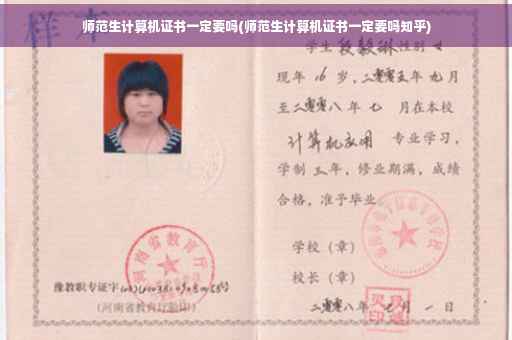 师范生计算机证书一定要吗(师范生计算机证书一定要吗知乎)
样本
学生段毅琳性别 女
现年 16 岁，二零零五年 九月
至二零零八年 七 月在本校
计算机应用 专业学习，
学制 三 年，修业期满，成绩
合格，准予毕业
学校（章）
校长（章）
豫教职专证字
(河南省教育厅验印)
河南省教育厅
二零零八年 七 月 一 日